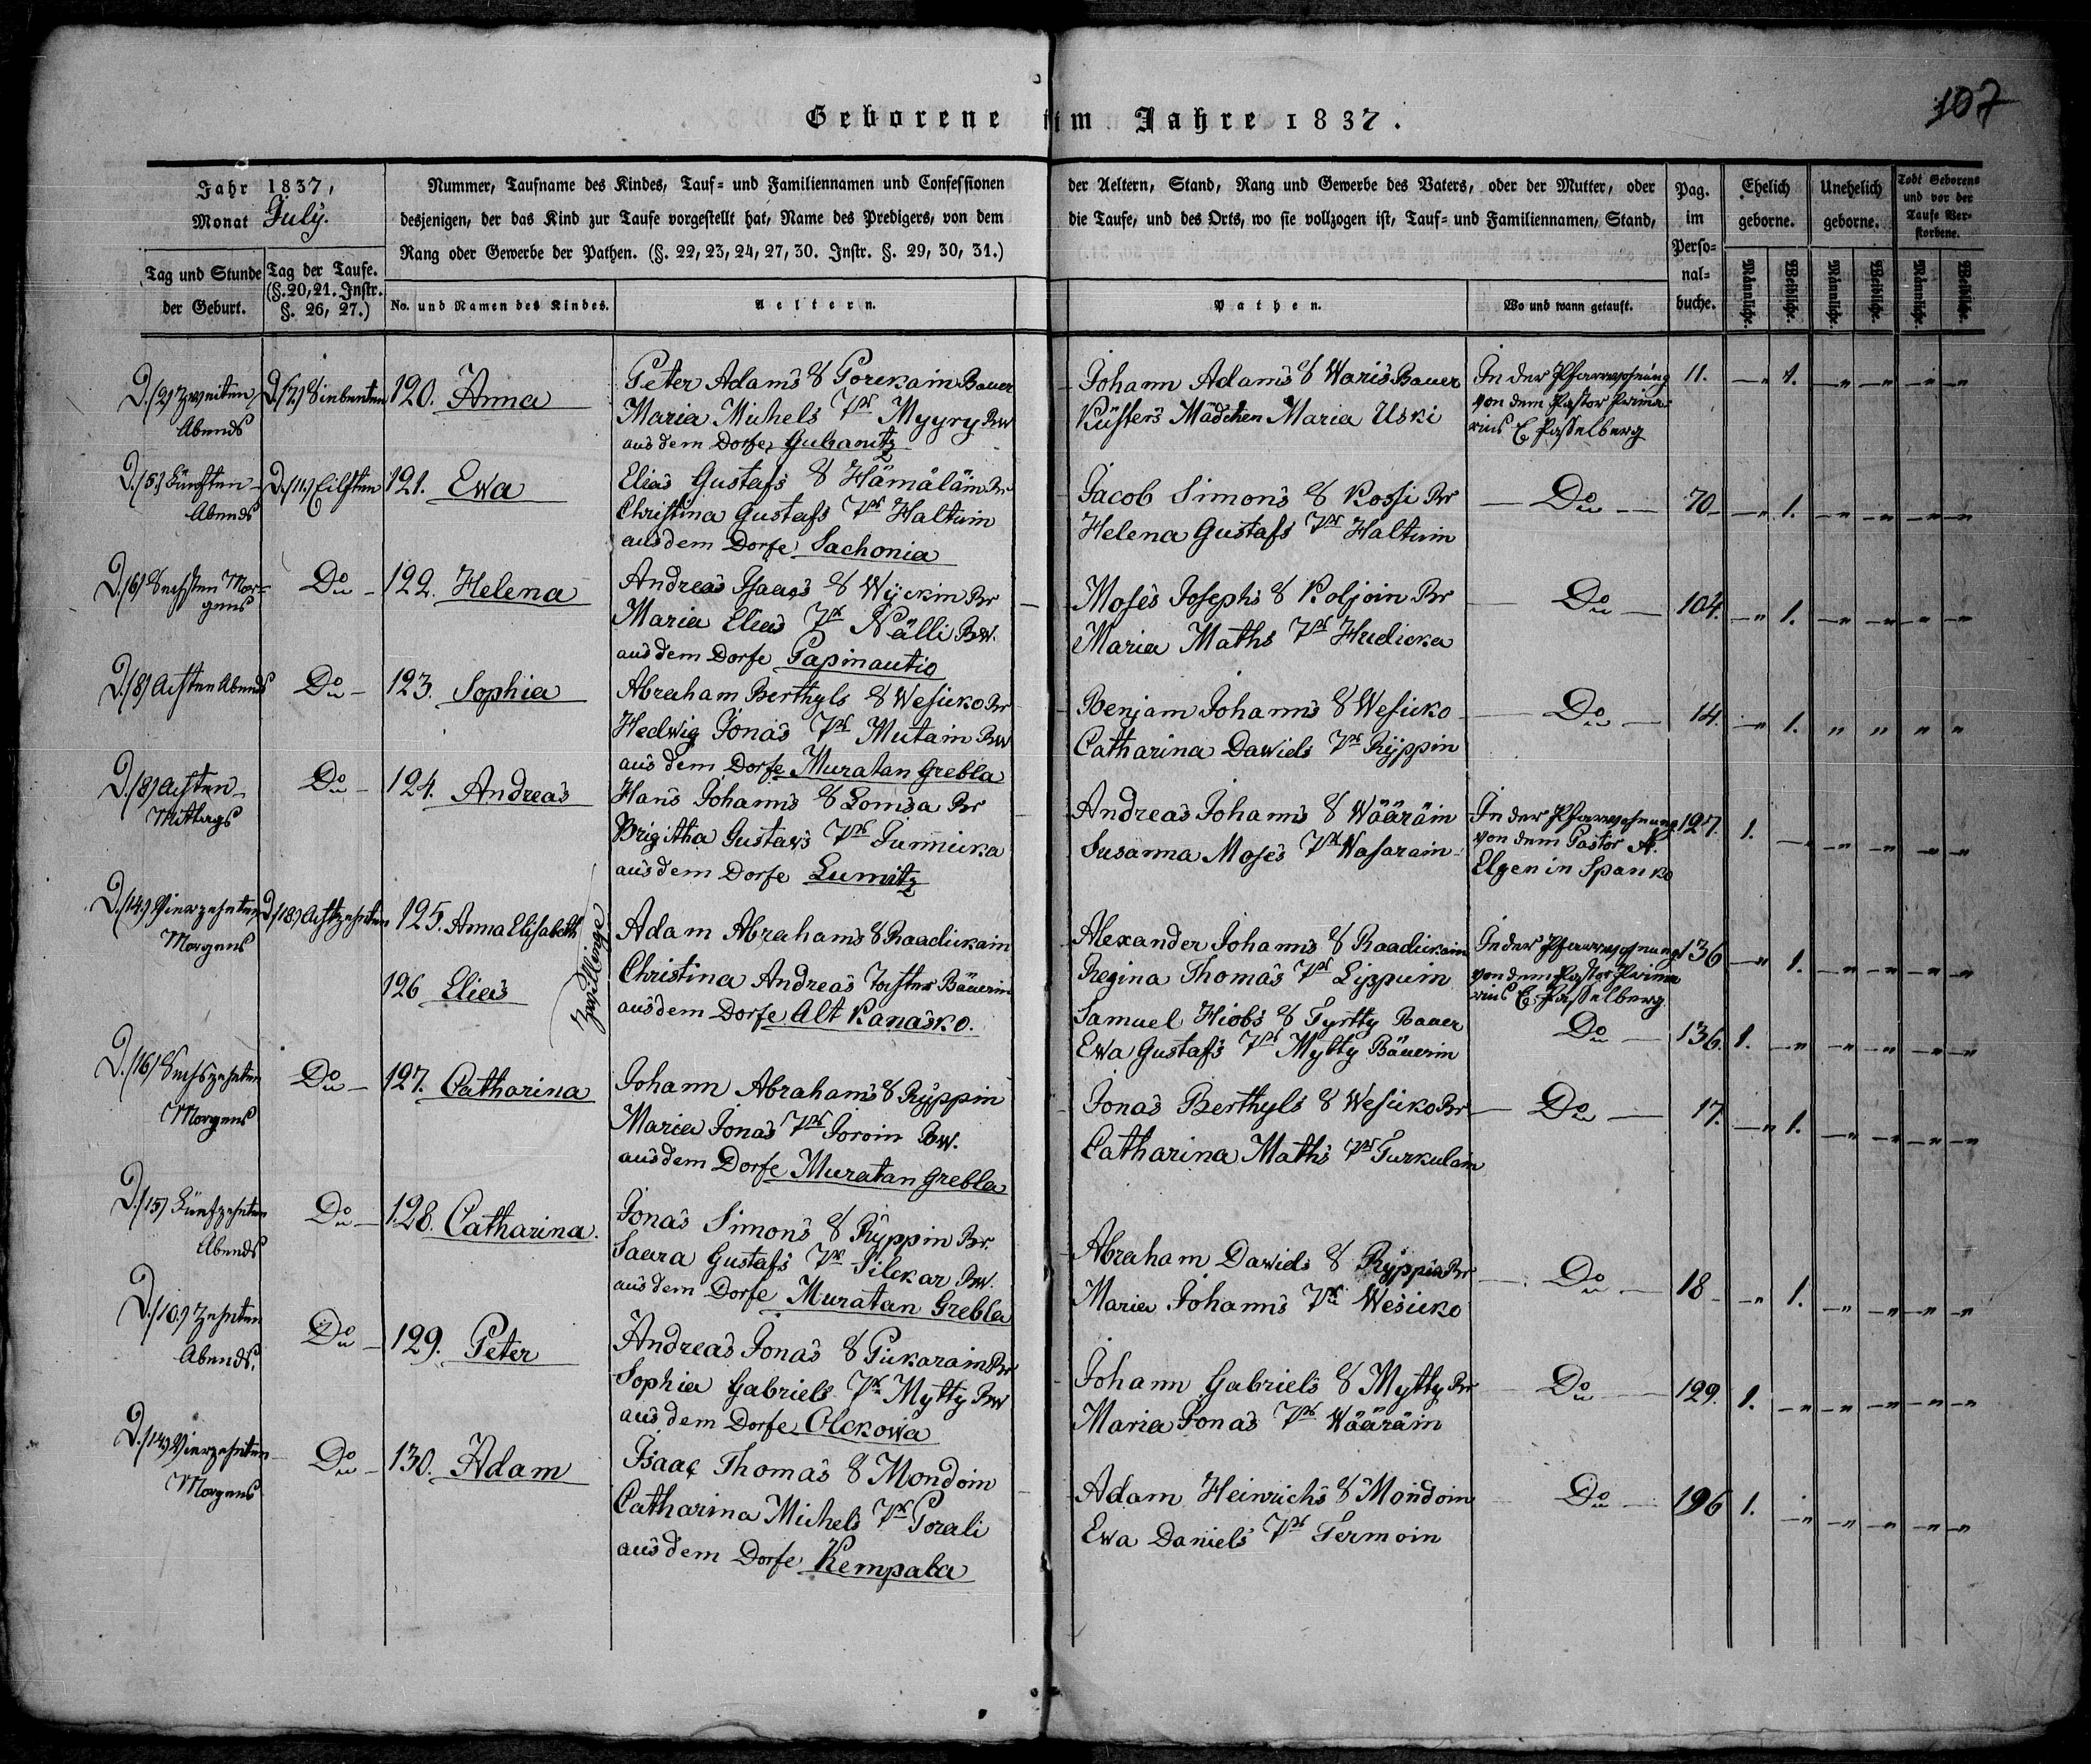 107
Geborene im Jahre 1837.
Jahr 1837,
Monat July.
Nummer, Taufname des Kindes, Tauf- und Familiennamen und Confessionen der Aeltern, Stand, Rang und Gewerbe des Vaters, oder der Mutter, oder
desjenigen, der das Kind zur Taufe vorgestellt hat, Name des Predigers, von dem die Taufe, und des Orts, wo sie vollzogen ist, Tauf- und Familiennamen, Stand,
Rang oder Gewerbe der Pathen. (§. 22, 23, 24, 27, 30. Instr. §. 29, 30, 31.)
Pag. im Perso-nal-buche.
Ehelich geborne.
Unehelich geborne.
Todt Geborene und vor der Taufe Ver-storbene.
Tag und Stunde der Geburt.
Tag der Taufe. (§. 20, 21. Instr. §. 26, 27.)
No. und Namen des Kindes.
Aeltern.
Pathen.
Wo und wann getauft.
Männliche. Weibliche. Männliche. Weibliche. Männliche. Weibliche.
D. (2) Zweiten Abends
D. (7.) Siebenten
120. Anna
Peter Adams S Porckain Bauer
Maria Michels Tr Myyry Bw
aus dem Dorfe Gubanitz
Johann Adams S Waris Bauer
Küsters Mädchen Maria Uski
In der Pfarrwohnung
von dem Pastor Prima-
rius E. Hasselberg
11. —„ 1. —„ —„ —„ —„
D. (5.) Fünften Abends
D. (11.) Eilften
121. Ewa
Elias Gustafs S Hämäläin Br
Christina Gustafs Tr Haltuin
aus dem Dorfe Sachonia
Jacob Simons S Kossi Br
Helena Gustafs Tr Haltuin
— Do —
70 —„ 1. —„ —„ —„ —„
D. (6) Sechsten Mor-
gens
Do
122. Helena
Andreas Isaacs S Wyckin Br
Maria Elias Tr Nälli Bw.
aus dem Dorfe Papinautio
Moses Josephs S Koljoin Br
Maria Maths Tr Hudicka
— Do —
104. —„ 1. —„ —„ —„ —„
D. (8) Achten Abends
Do
123. Sophia
Abraham Berthyls S Wesicko Br
Hedwig Jonas Tr Mutain Bw
aus dem Dorfe Muratan Grebla
Benjam Johanns S Wesicko
Catharina Dawids Tr Ryppin
— Do —
14. —„ 1. „ „ „ „
D. (8) Achten
Mittags
Do
124. Andreas
Hans Johanns S Lomsa Br
Brigitha Gustaws Tr
aus dem Dorfe Lumitz
Andreas Johanns S Wääräin
Susanna Moses Tr Wasarain
In der Pfarrwohnung
von dem Pastor A.
Elgen in Spanko
127. 1. — —„ —„ —„ —„
D. (14.) Vierzehnten
Morgens
D. (18.) Achtzehnten
125. Anna Elisabeth
126 Elias
Zwillinge
Adam Abrahams S Raadickain
Christina Andreas Tochter Bäuerin
aus dem Dorfe Alt Kanasko.
Alexander Johanns S Raadickain
Regina Thomas Tr Lippuin
In der Pfarrwohnung
von dem Pastor Prima
rius E. Hasselberg
136 —„ 1. —„ —„ —„ —„
Samuel Hiobs S Tyrtty Bauer
Ewa Gustafs Tr Mytty Bäuerin
Do —
136. 1. —„ —„ —„ —„ —„
D. (16) Sechszehnten
Morgens
Do
127. Catharina
Johann Abrahams S Ryppin
Maria Jonas Tr Joroin Bw.
aus dem Dorfe Muratan Grebla
Jonas Berthyls S Wesicko Br
Catharina Maths Tr Turkulain
— Do —
17. —„ 1. —„ —„ —„ —„
D. (15) Fünfzehnten
Abends
Do
128. Catharina.
Jonas Simons S Ryppin Br.
Saara Gustafs Tr Silckar Bw.
aus dem Dorfe Muratan Grebla
Abraham Dawids S Ryppin Br
Maria Johanns Tr Wesicko
— Do —
18 —„ 1. —„ —„ —„ —„
D. (10.) Zehnten
Abends.
Do
129. Peter
Andreas Jonas S Pukarain Br
Sophia Gabriels Tr Mytty Bw
aus dem Dorfe Olckowa
Johann Gabriels S Mytty Br
Maria Jonas Tr Wääräin
— Do —
129. 1. —„ —„ —„ —„ —„
D. (14.) Vierzehnten
Morgens
Do
130. Adam
Isaac Thomas S Mondoin
Catharina Michels Tr Porali
aus dem Dorfe Kempala
Adam Heinrichs S Mondoin
Ewa Daniels Tr Termoin
— Do —
196 1. —„ —„ —„ —„ —„